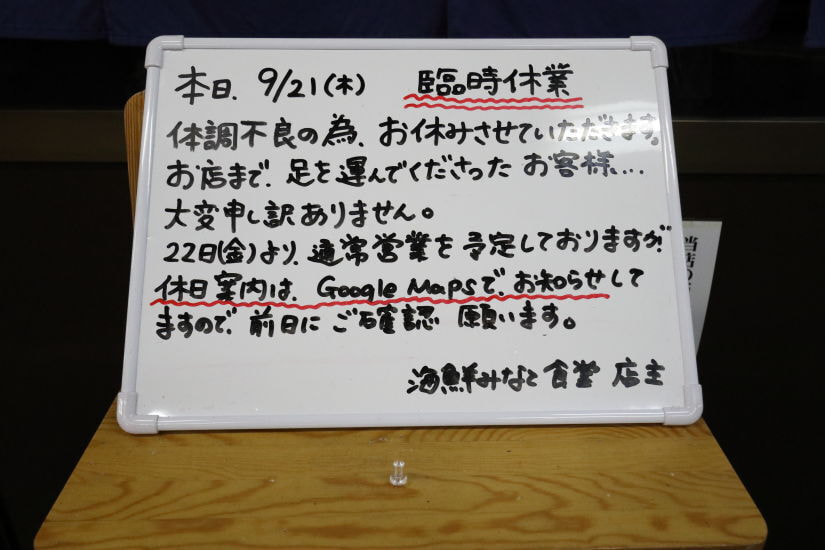 本日、9/21(木) 臨時休業
体調不良の為、お休みさせていただきます。
お店まで、足を運んでくださったお客様…
大変申し訳ありません。
22日(金)より、通常営業を予定しておりますが、
休日案内は、Google Mapsで、お知らせして
ますので、前日にご確認 願います。
海鮮みなと食堂 店主
当店の